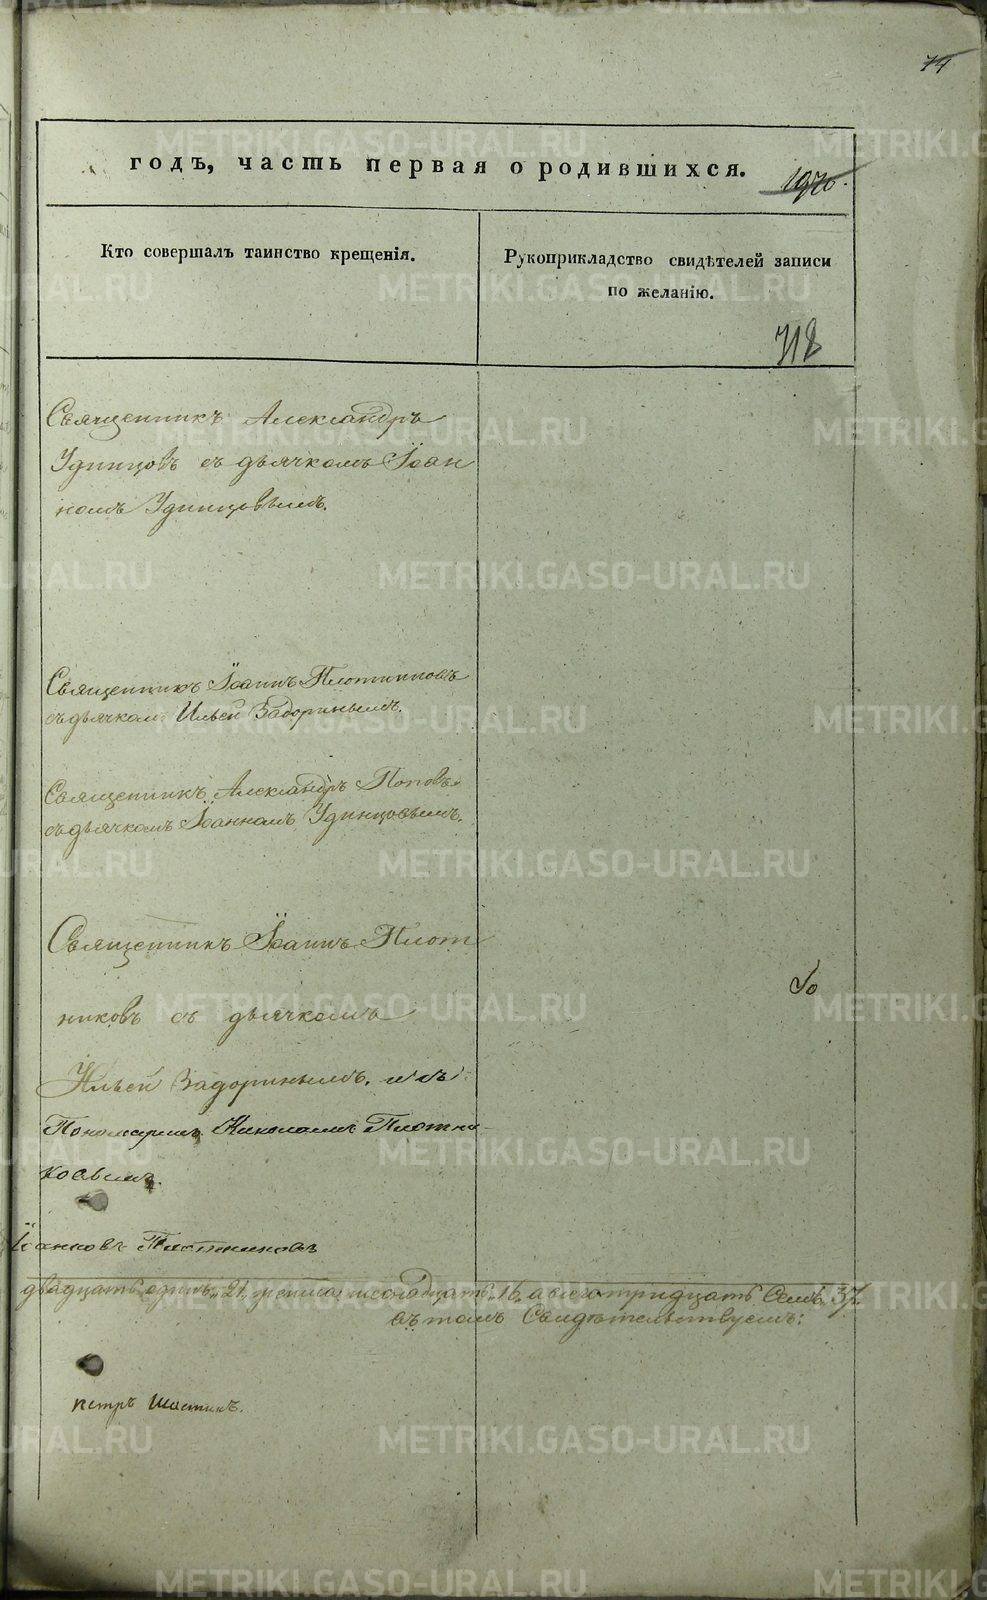 74
годъ, часть первая о родившихся.
Кто совершалъ таинство крещенія.
Рукоприкладство свидѣтелей записи
по желанію.
318
Священникъ Александръ
Удинцовъ съ дьячкомъ Іоан
номъ Удинцовымъ.
Священникъ Іоаннъ Плотниковъ
съ дьячкомъ Ильей Задоринымъ.
Священникъ Александръ Поповъ
съ дьячкомъ Іоанномъ Удинцовымъ.
Священникъ Іоаннъ Плот
никовъ съ дьячкомъ
Ильей Задоринымъ, и съ
Пономаремъ Николаемъ Плотни
ковымъ.
Іоанновъ Плотниковъ
двадцать одинъ, 21, женска шеснадцать, 16, а всего тридцать семь, 37.
въ томъ свидѣтельствуемъ:
петръ Шастинъ.
METRIKI.GASO-URAL.RU